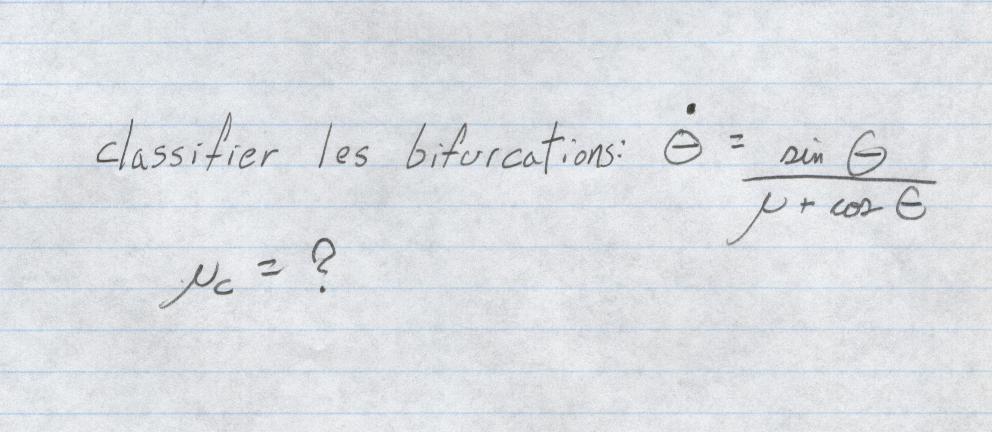 classifier les bifurcations: θ̇ = sin θ / μ + cos θ
μc = ?